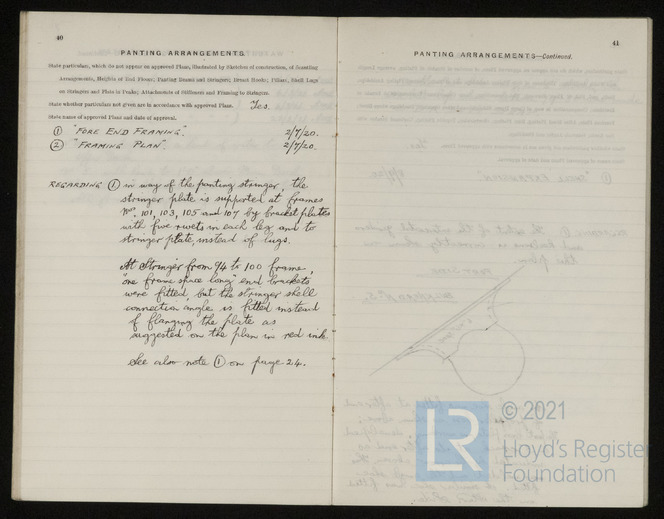 40
PANTING ARRANGEMENTS.
State particulars, which do not appear on approved Plans, illustrated by Sketches of construction, of Scantling
Arrangements, Heights of End Floors, Panting Beams and Stringers; Breast Hooks; Pillars, Shell Lugs
on Stringers and Plate or Peaks; Attachments of Stiffeners and Framing to Stringers.
State whether particulars not given are in accordance with approved Plans. Yes.
State name of approved Plans and date of approval.
① "FORE END FRAMING". 2/7/20.
② "FRAMING PLAN". 2/7/20.
REGARDING ① in way of the panting stringer, the
stringer plate is supported at frames
Nos. 101, 103, 105 and 107 by bracket plates
with five rivets in each leg and to
stringer plate, instead of lugs.
At Stringer from 94 to 100 frame,
"one frame space long" end brackets
were fitted, but the stringer shell
connection angle is fitted instead
of flanging the plate as
suggested on the plan in red ink
See also note ① on page 24.
41
PANTING ARRANGEMENTS—Continued.
LR
© 2021
Lloyd's Register
Foundation